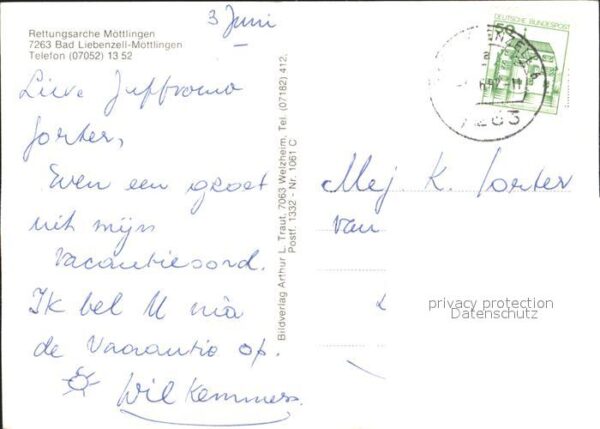 3 Juni
Rettungsarche Möttlingen
7263 Bad Liebenzell-Möttlingen
Telefon (07052) 13 52
Lieve Juffrouw
Jorter,
Even een groet
uit mijn
vacantieoord.
Ik bel U na
de Vacantie op.
Wil Kemmers.
Bildverlag Arthur L. Traut, 7063 Welzheim, Tel. (07182) 412,
Postf. 1332 - Nr. 1061 C
DEUTSCHE BUNDESPOST
50
7263
Mej K. Jorter
van
privacy protection
Datenschutz